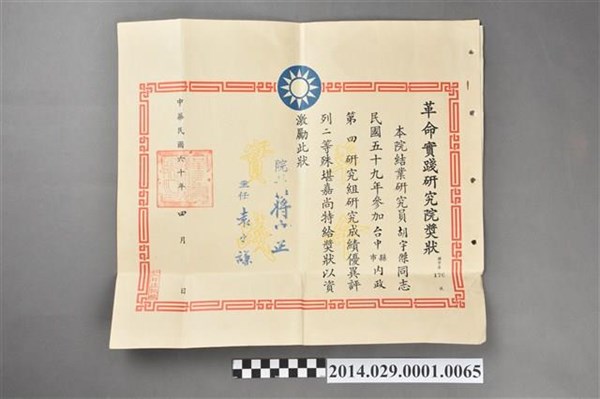 革命實踐研究院獎狀
本院結業研究員胡宇傑同志
民國五十九年參加台中縣市內政
第四研究組研究成績優異評
列二等殊堪嘉尚特給獎狀以資
激勵此狀
實踐
院長 蔣中正
主任 袁守謙
中華民國六十年 四月 日
2014.029.0001.0065